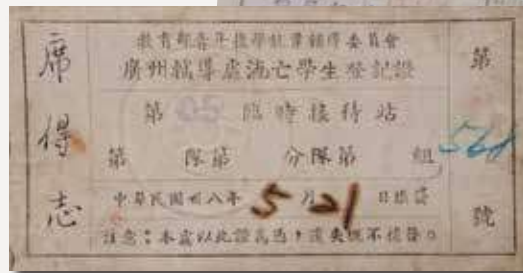 席得志
教育部青年復學就業輔導委員會
廣州輔導處流亡學生登記證
第 05 臨時接待站
第 隊第 分隊第 組
中華民國卅八年 5 月 21 日填發
注意：本處以此證為憑，遺失概不補發。
第 號